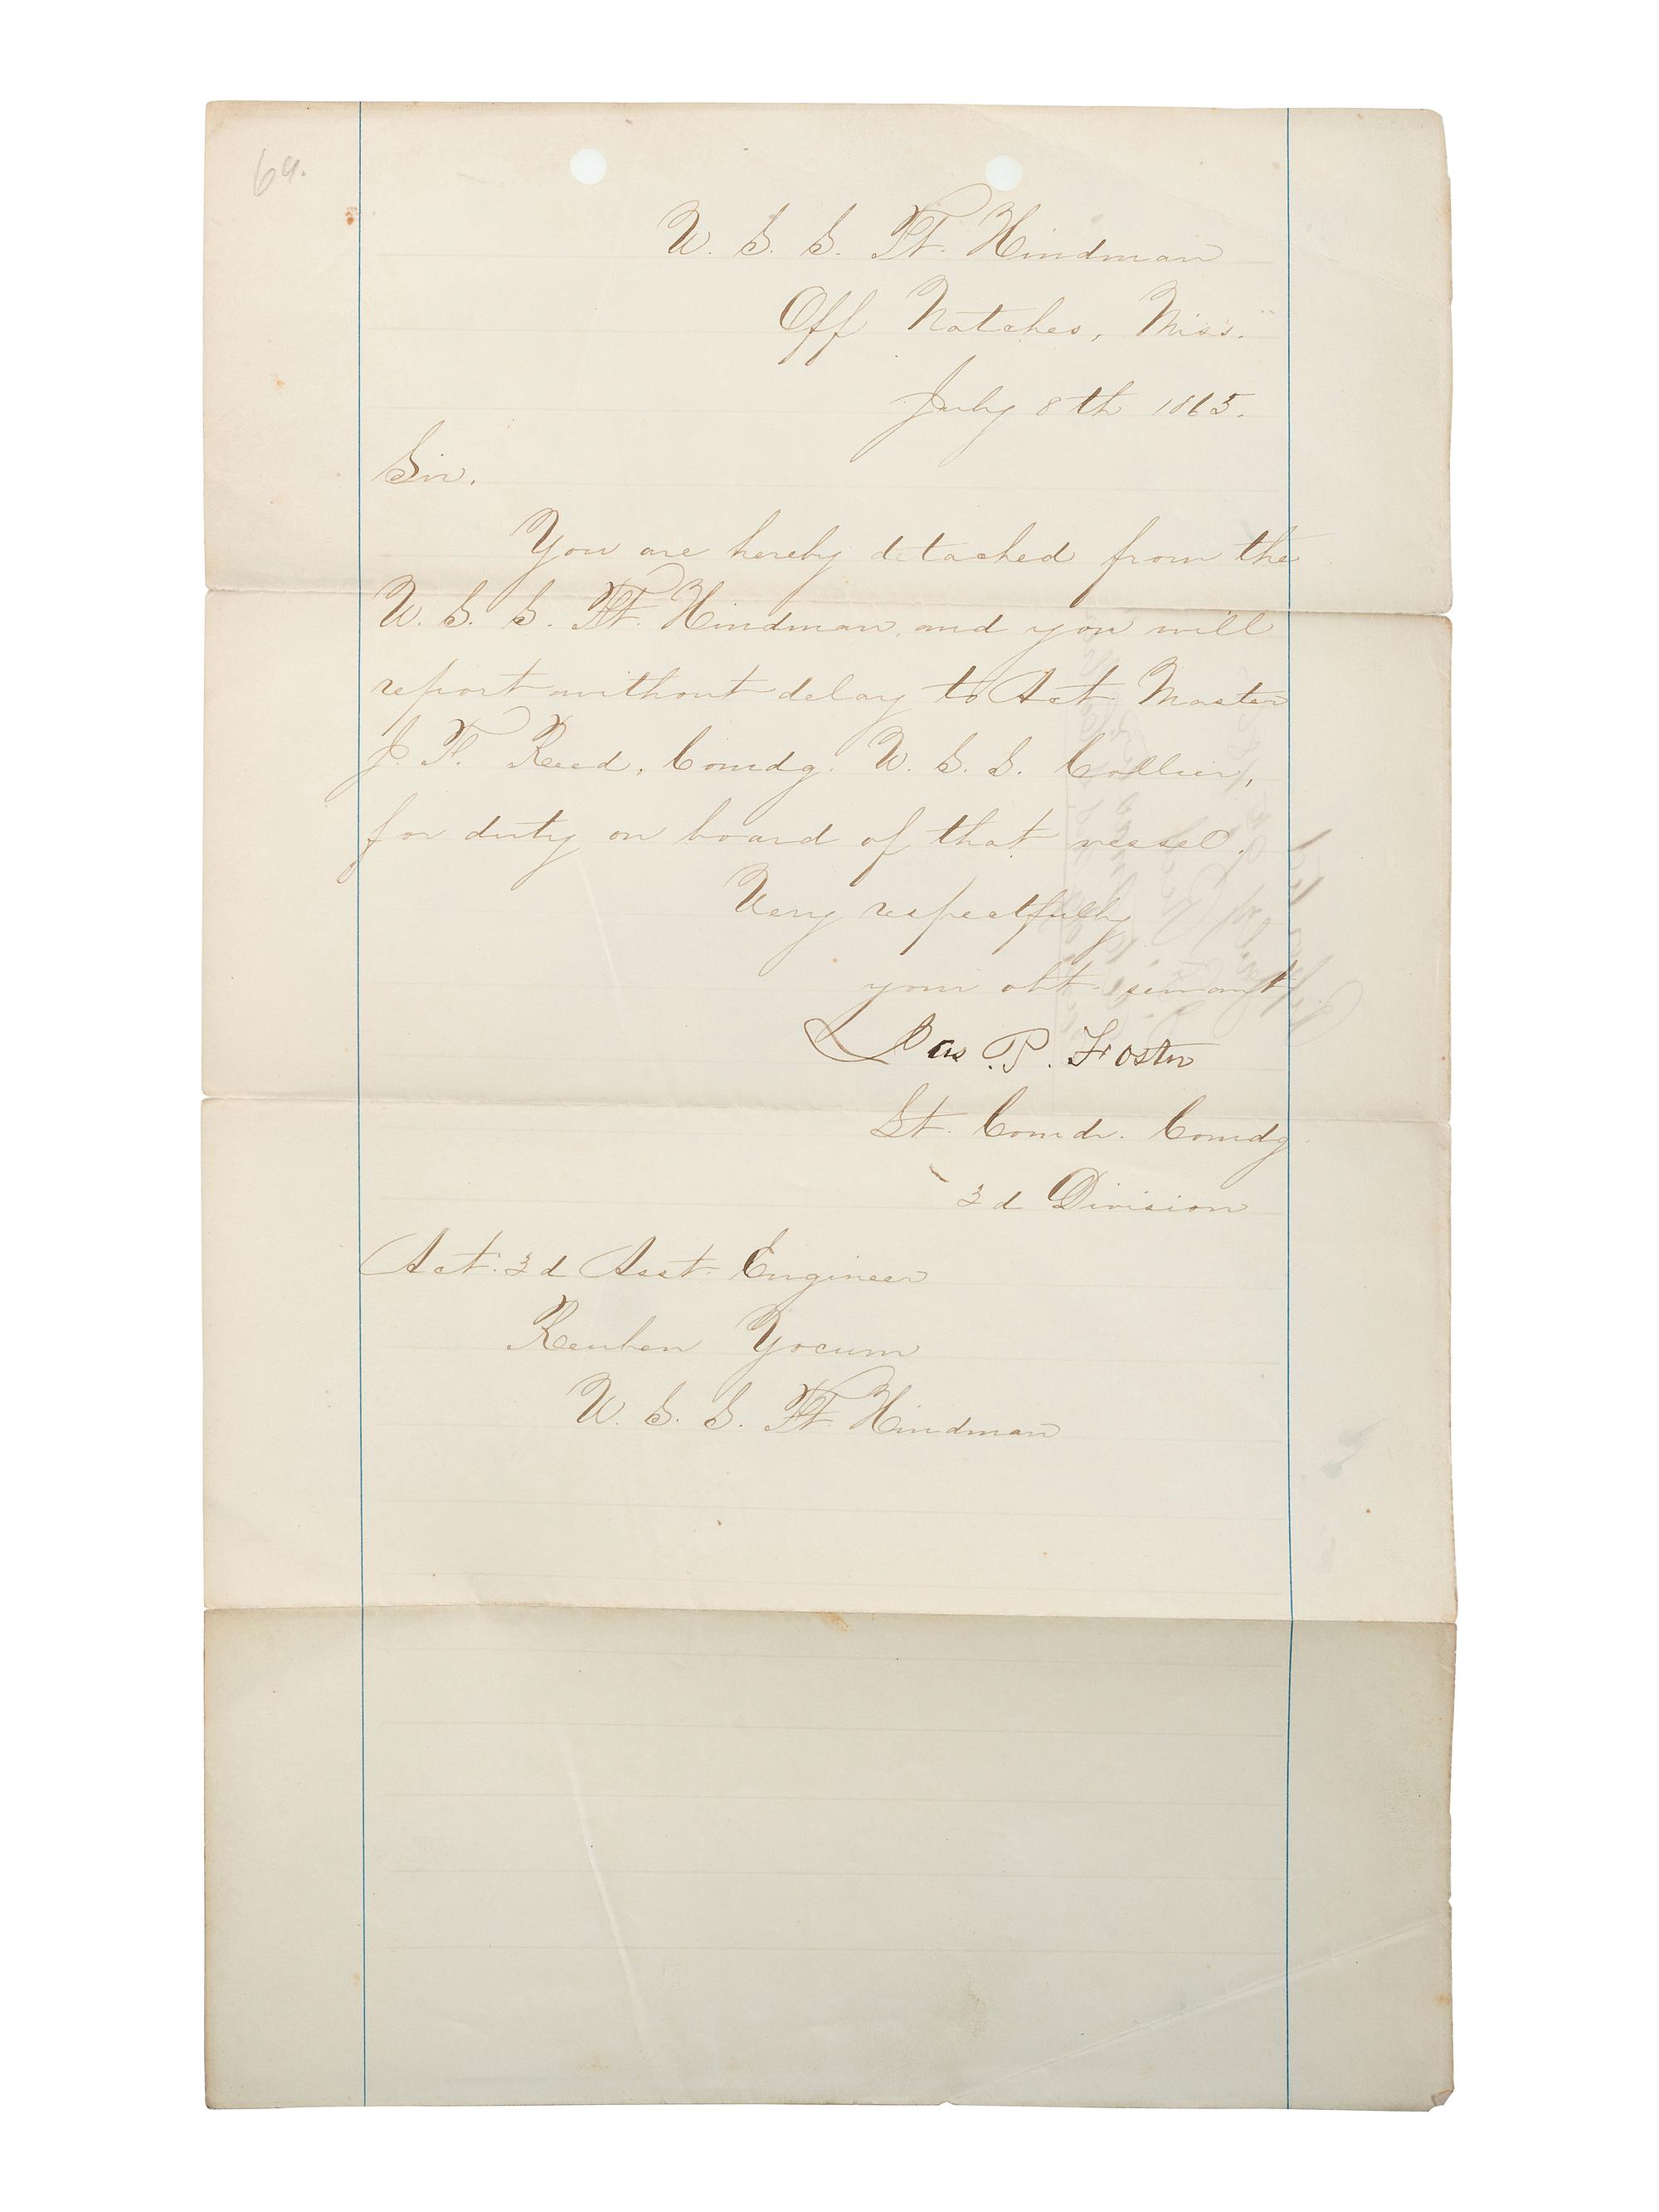 69.
U. S. S. Ft. Hindman
Off Natches, Miss.
July 8th 1865.
Sir.
You are hereby detached from the
U. S. S. Ft. Hindman, and you will
report without delay to Act Master
J. F. Reed, Comdg. U. S. S. Collier,
for duty on board of that vessel.
Very respectfully
your obt servant
Jas P. Foster
Lt. Comdr. Comdg.
3d Division
Act. 3d Asst. Engineer
Reuben Yocum
U. S. S. Ft. Hindman